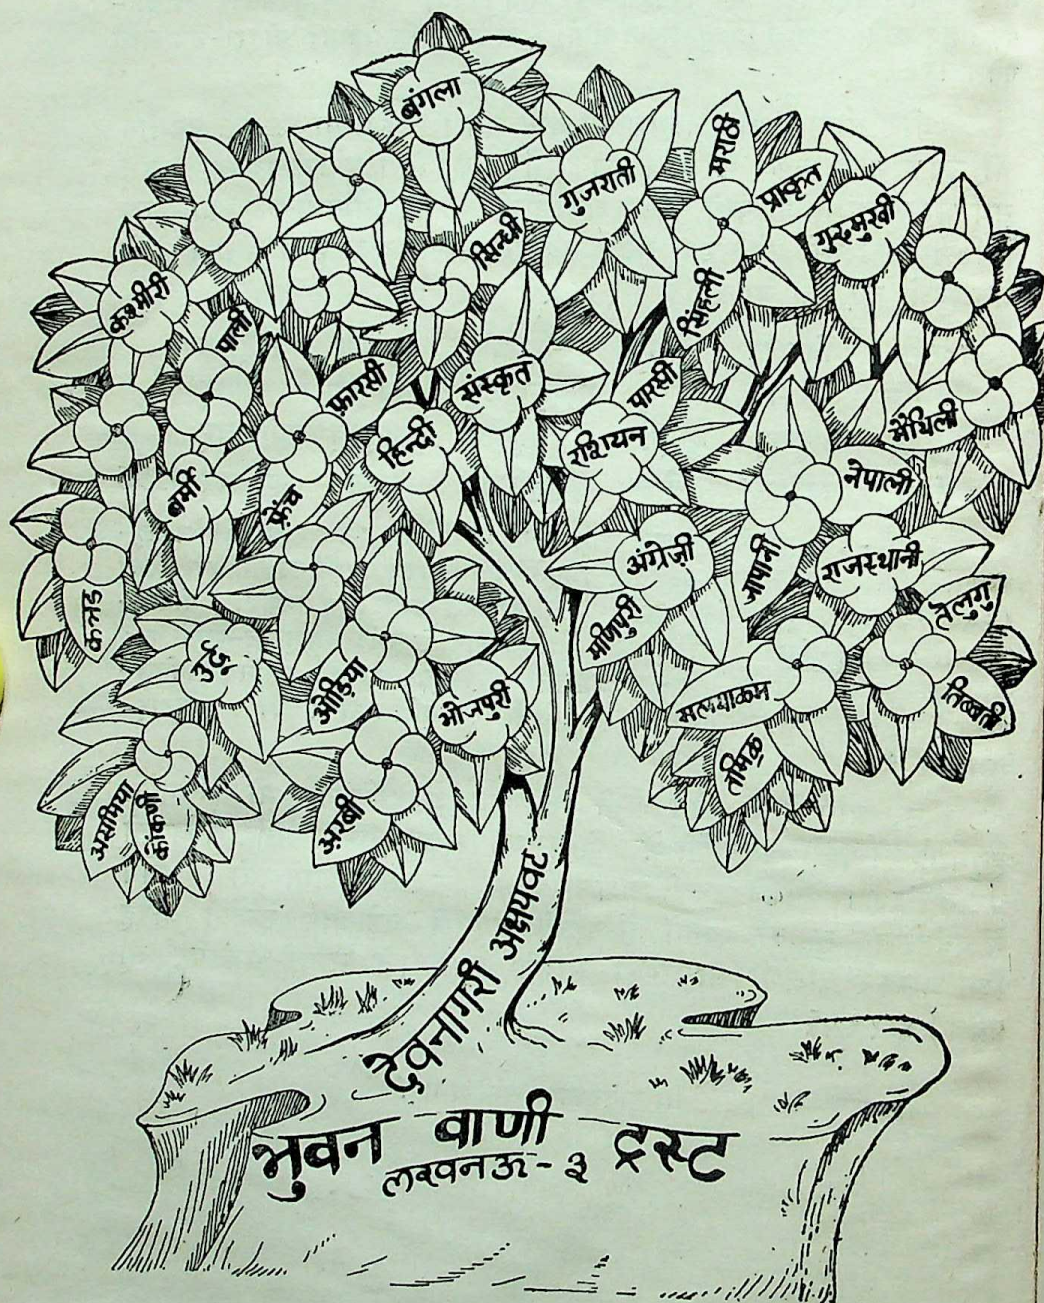 बंगला
मराठी
गुजराती
प्राकृत
गुरुमुखी
सिन्धी
कश्मीरी
सिंहली
पाली
फ़ारसी
संस्कृत
पारसी
हिन्दी
रशियन
मैथिली
बर्मी
फ़्रेंच
नेपाली
अंग्रेज़ी
जापानी
राजस्थानी
कन्नड
मणिपुरी
तेलुगु
उर्दू
ओड़िया
भोजपुरी
मलयाळम
तिब्बती
तमिळ
असमिया
कोंकणी
अ़रबी
देवनागरी अक्षयवट
भुवन वाणी ट्रस्ट
लखनऊ-३